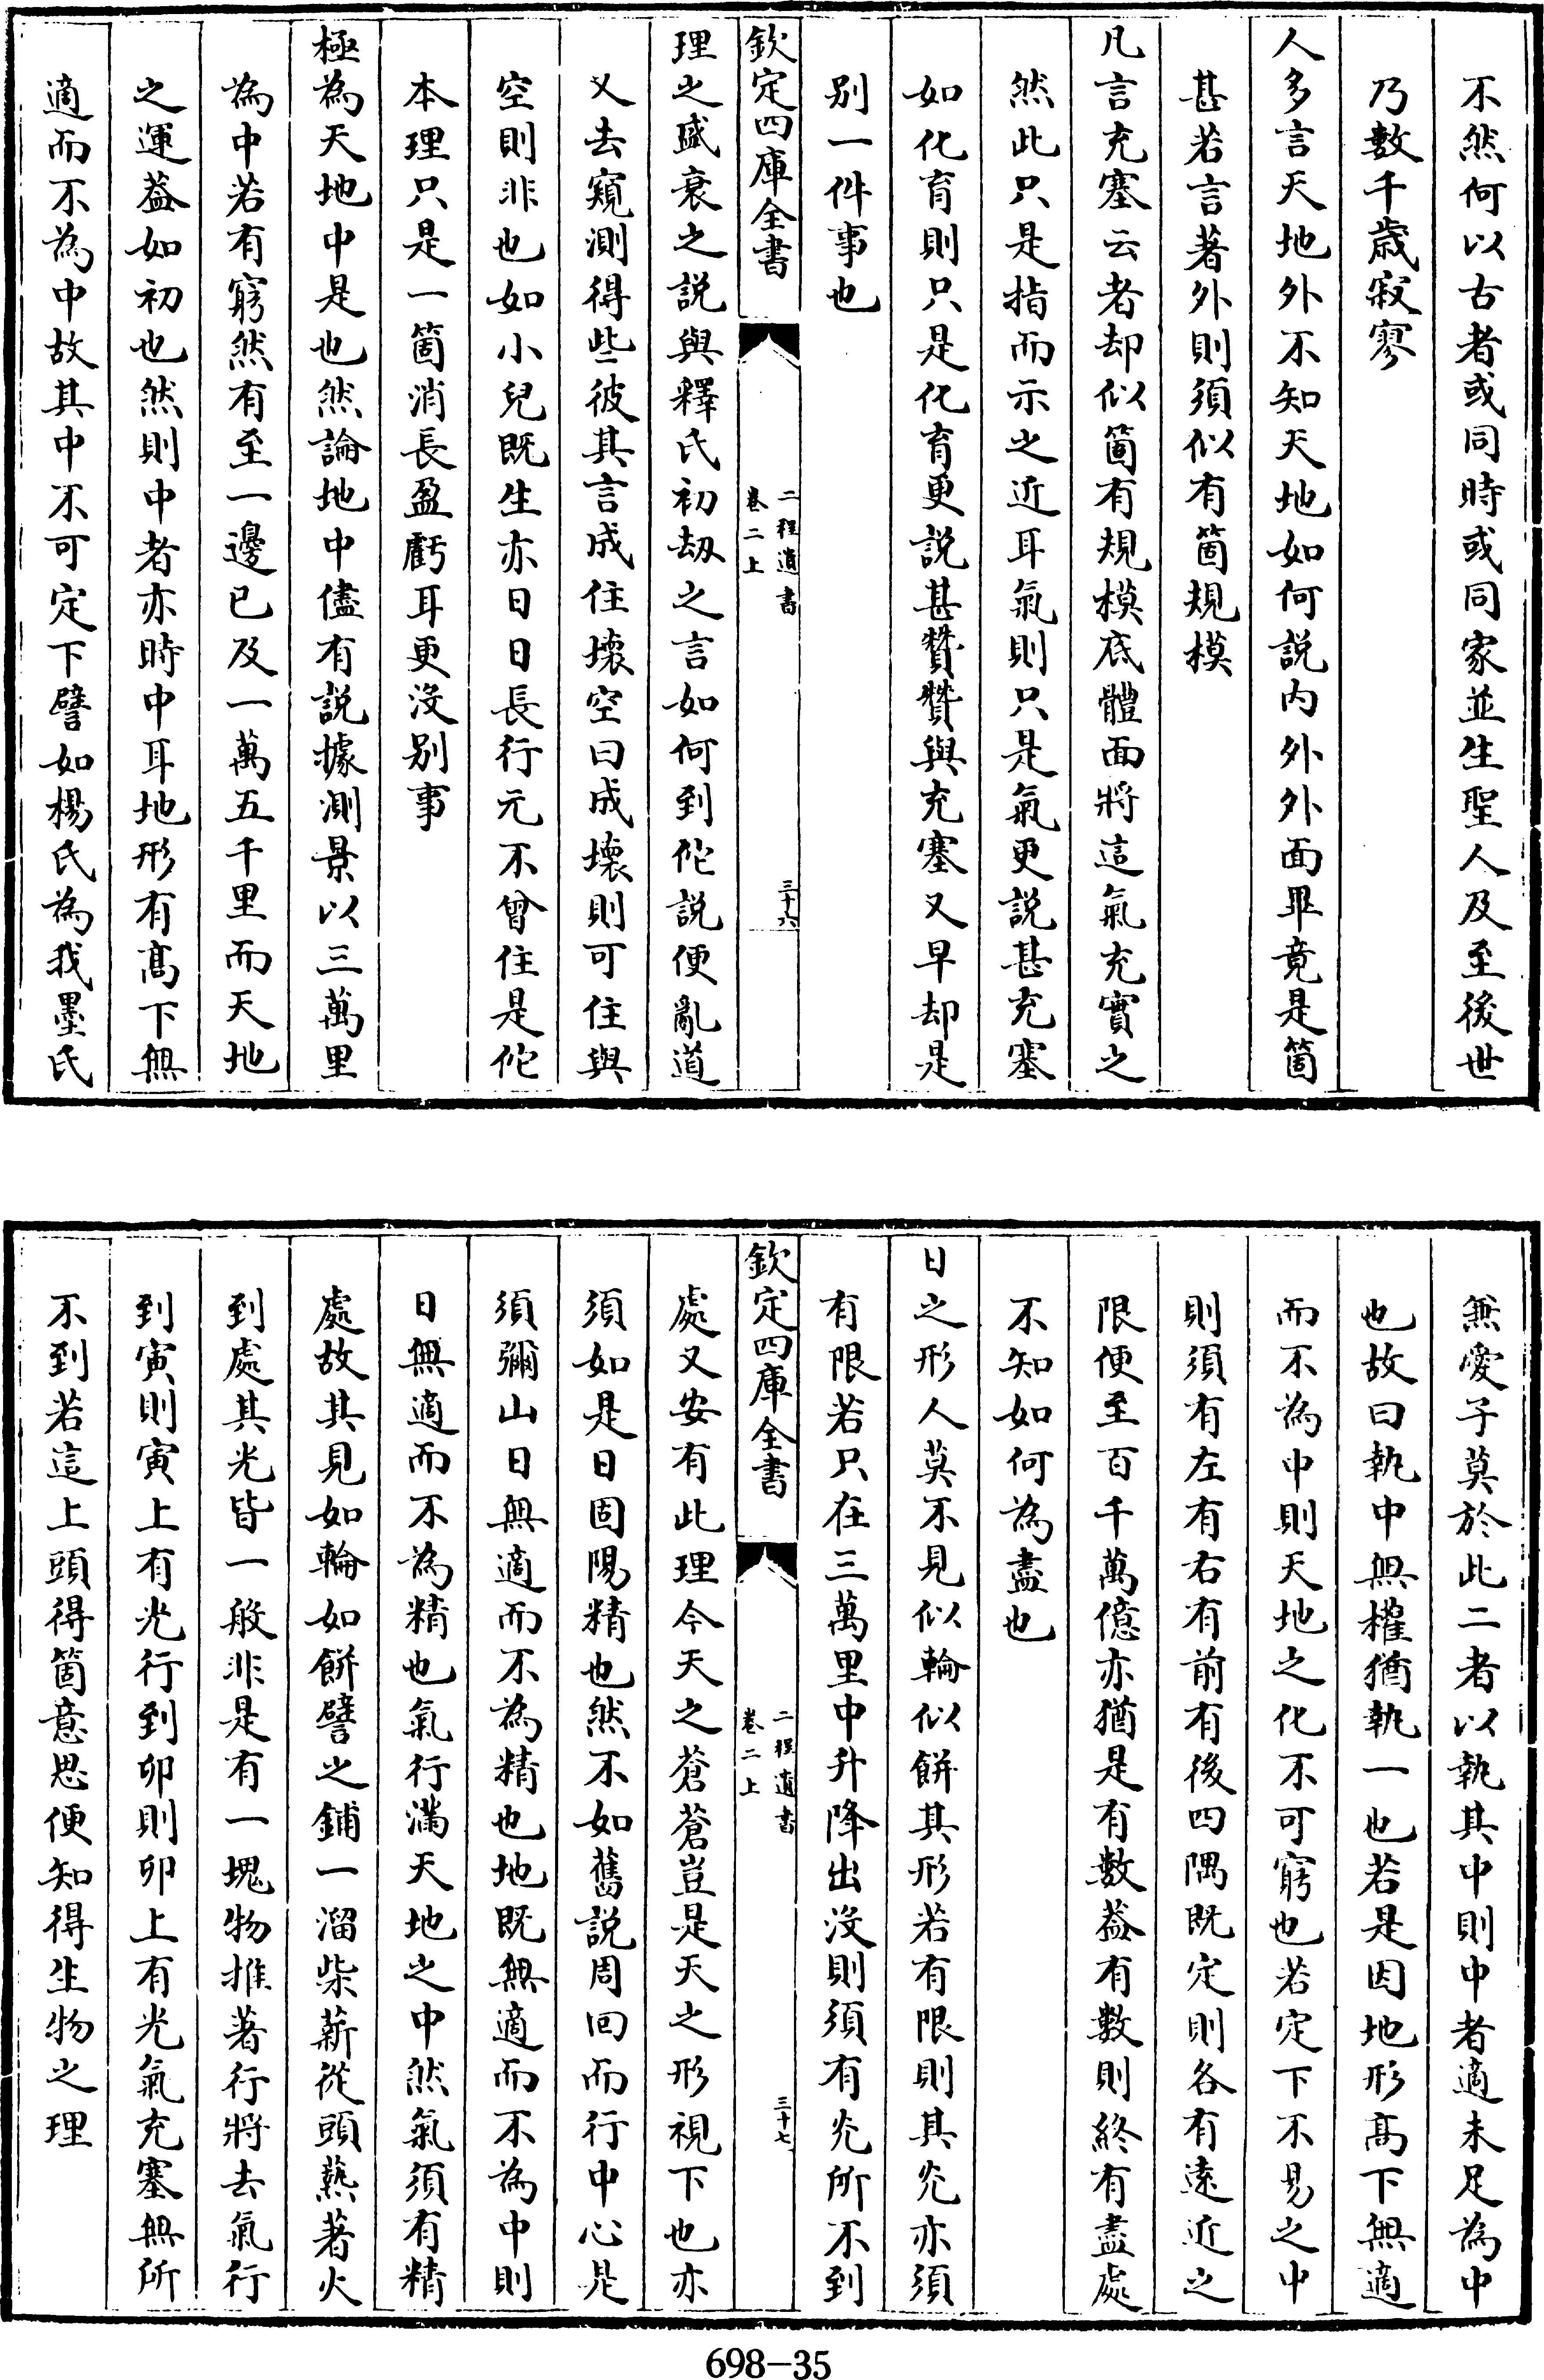 不然何以古者或同時或同家並生聖人及至後世
乃數千歳寂寥
人多言天地外不知天地如何説内外外面畢竟是箇
甚若言著外則須似有箇規模
凡言充塞云者却似箇有規模底體面將這氣充實之
然此只是指而示之近耳氣則只是氣更説甚充塞
如化育則只是化育更説甚贊贊與充塞又早却是
别一件事也
欽定四庫全書
二程遺書
卷二上
三十六
理之盛衰之説與釋氏初劫之言如何到佗説便亂道
又去窺測得些彼其言成住壞空曰成壞則可住與
空則非也如小兒既生亦日日長行元不曾住是佗
本理只是一箇消長盈虧耳更沒别事
極為天地中是也然論地中儘有説據測景以三萬里
為中若有窮然有至一邊已及一萬五千里而天地
之運葢如初也然則中者亦時中耳地形有髙下無
適而不為中故其中不可定下譬如楊氏為我墨氏
兼愛子莫於此二者以執其中則中者適未足為中
也故曰執中無權猶執一也若是因地形髙下無適
而不為中則天地之化不可窮也若定下不易之中
則須有左有右有前有後四隅既定則各有逺近之
限便至百千萬億亦猶是有數葢有數則終有盡處
不知如何為盡也
日之形人莫不見似輪似餅其形若有限則其光亦須
有限若只在三萬里中升降出沒則須有光所不到
欽定四庫全書
二程遺書
卷二上
三十七
處又安有此理今天之蒼蒼豈是天之形視下也亦
須如是日固陽精也然不如舊説周回而行中心是
須彌山日無適而不為精也地既無適而不為中則
日無適而不為精也氣行滿天地之中然氣須有精
處故其見如輪如餅譬之鋪一溜柴薪從頭爇著火
到處其光皆一般非是有一塊物推著行將去氣行
到寅則寅上有光行到卯則卯上有光氣充塞無所
不到若這上頭得箇意思便知得生物之理
698-35